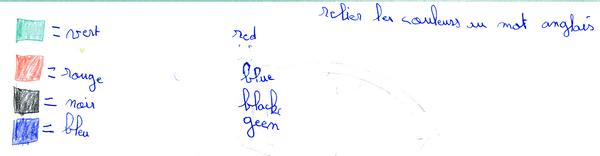 relier les couleurs au mot anglais
= vert red
= rouge blue
= noir black
= bleu geen